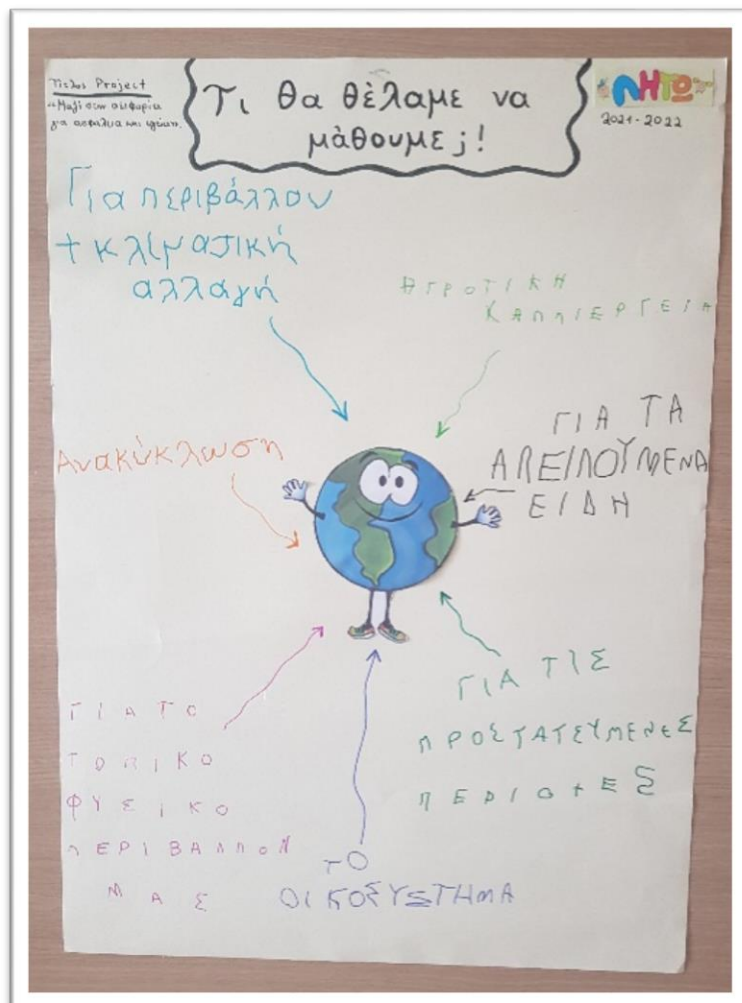 Τίτλος Project
"Μαζί στην αειφορία
για ασφάλεια και υγεία".
Τι θα θέλαμε να
μάθουμε ;!
ΛΗΤΩ
2021-2022
Για περιβάλλον
+ κλιματική
αλλαγή
ΑΓΡΟΤΙΚΗ
ΚΑΛΛΙΕΡΓΕΙΑ
Ανακύκλωση
ΓΙΑ ΤΑ
ΑΠΕΙΛΟΥΜΕΝΑ
ΕΙΔΗ
ΓΙΑ ΤΙΣ
ΠΡΟΣΤΑΤΕΥΜΕΝΕΣ
ΠΕΡΙΟΧΕΣ
ΓΙΑ ΤΟ
ΤΟΠΙΚΟ
ΦΥΣΙΚΟ
ΠΕΡΙΒΑΛΛΟΝ
ΜΑΣ
ΤΟ
ΟΙΚΟΣΥΣΤΗΜΑ